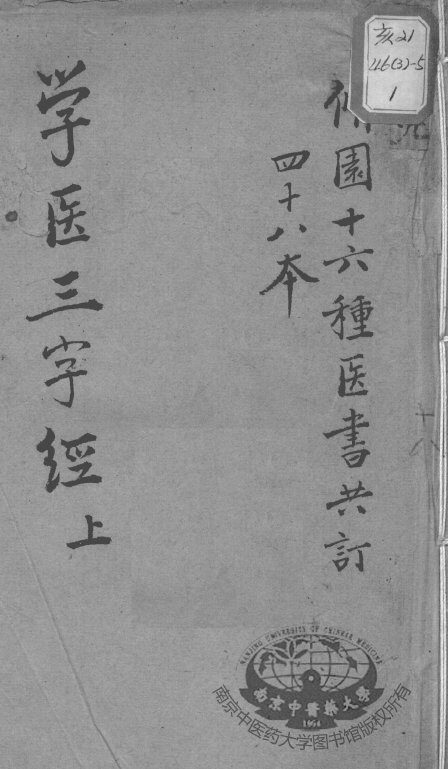 亥21
116(3)-5
1
脩園十六種医書共訂
四十八本
学医三字經上
NANJING UNIVERSITY OF CHINESE MEDICINE
南京中醫藥大學
1954
南京中医药大学图书馆版权所有